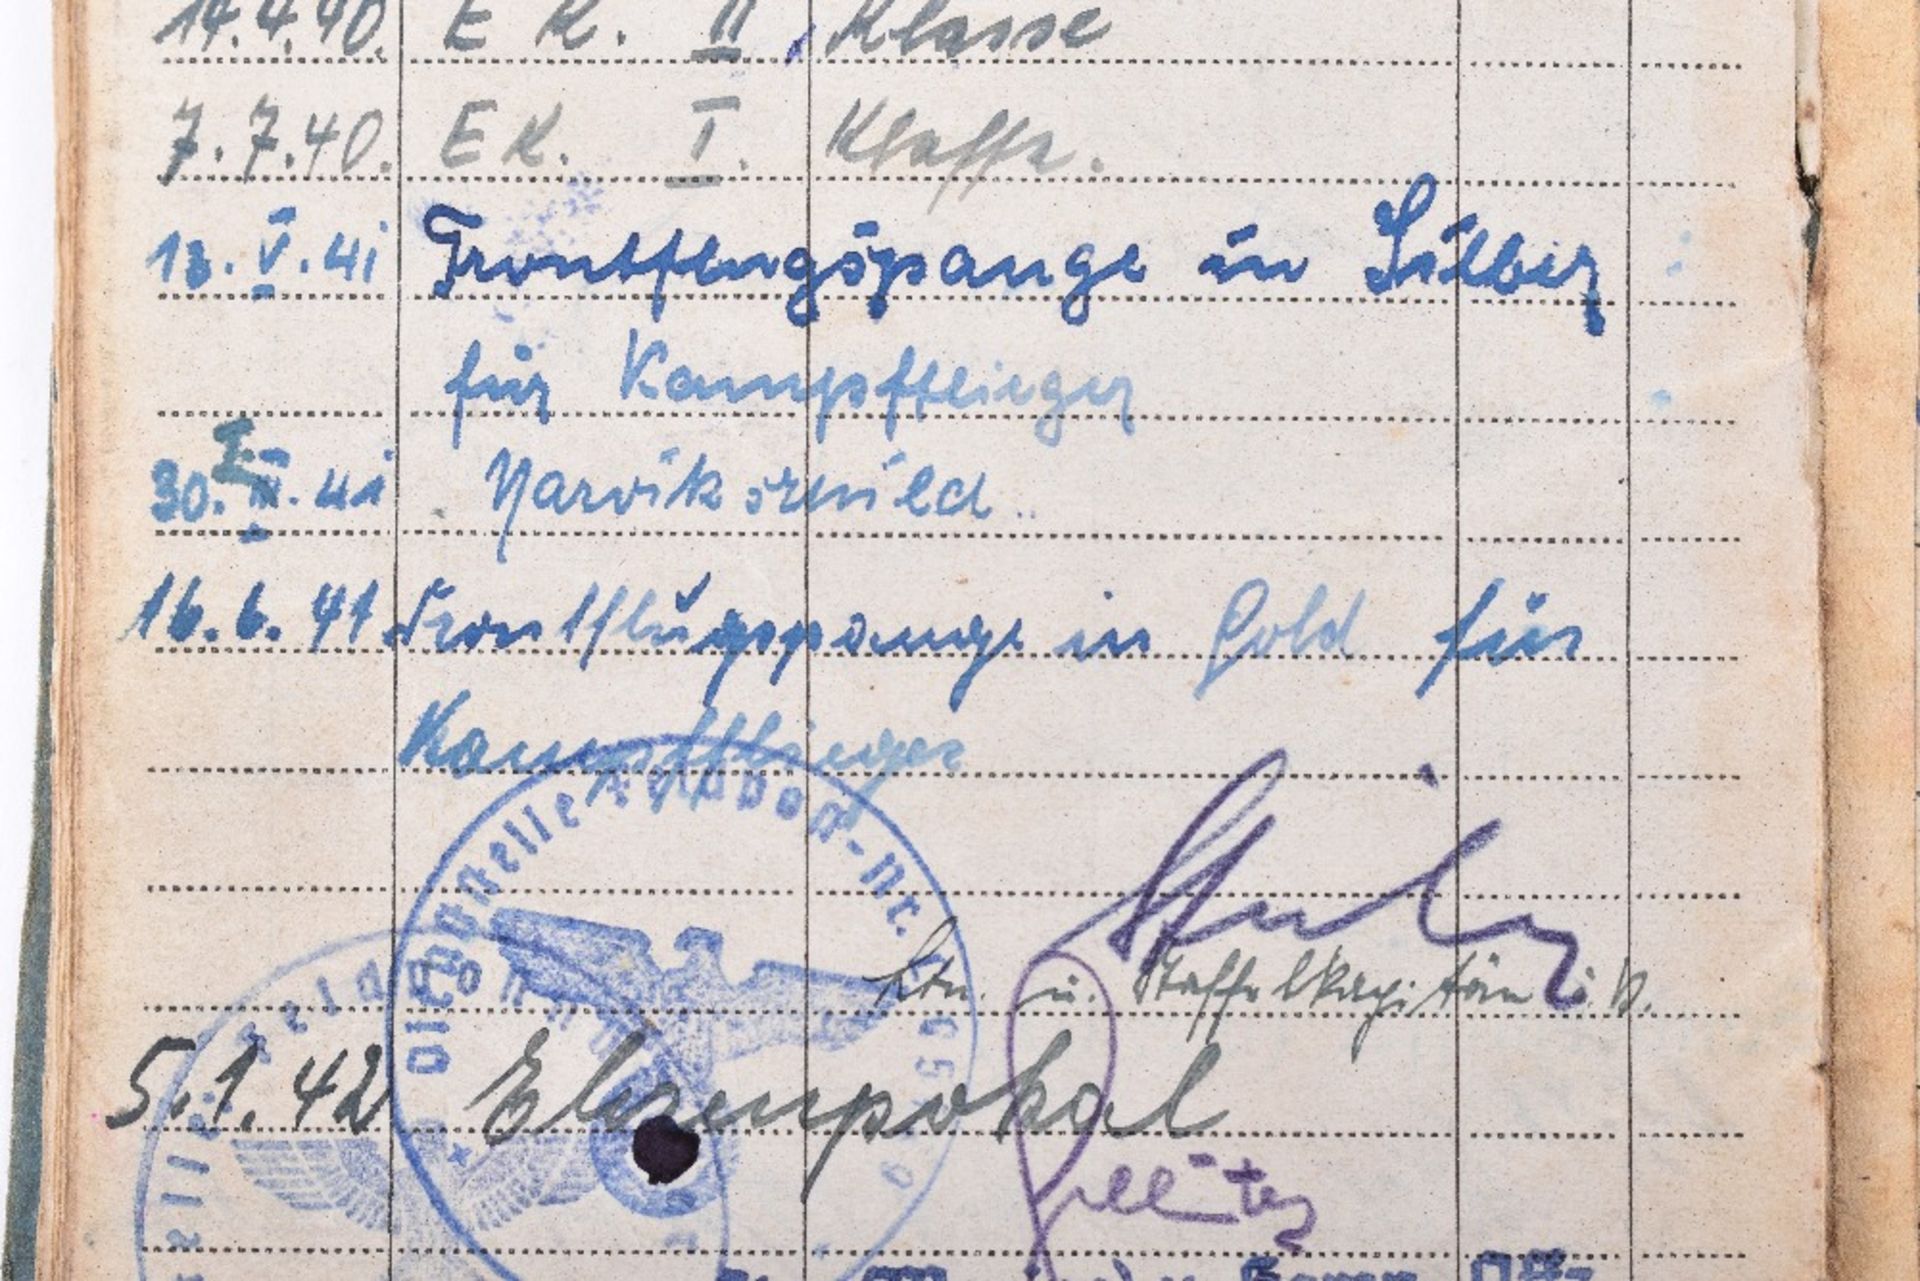 14.4.40. E K. II, Klasse
7.7.40. E K. I. Klasse.
13.V.41 Frontflugspange in Silber
für Kampfflieger
30.I.41 Narvikschild
16.6.41 Frontflugspange in Gold für
Kampfflieger
Dienststelle Feldpost-Nr.
Ltn. u. Staffelkapitän i.V.
5.1.42 Ehrenpokal